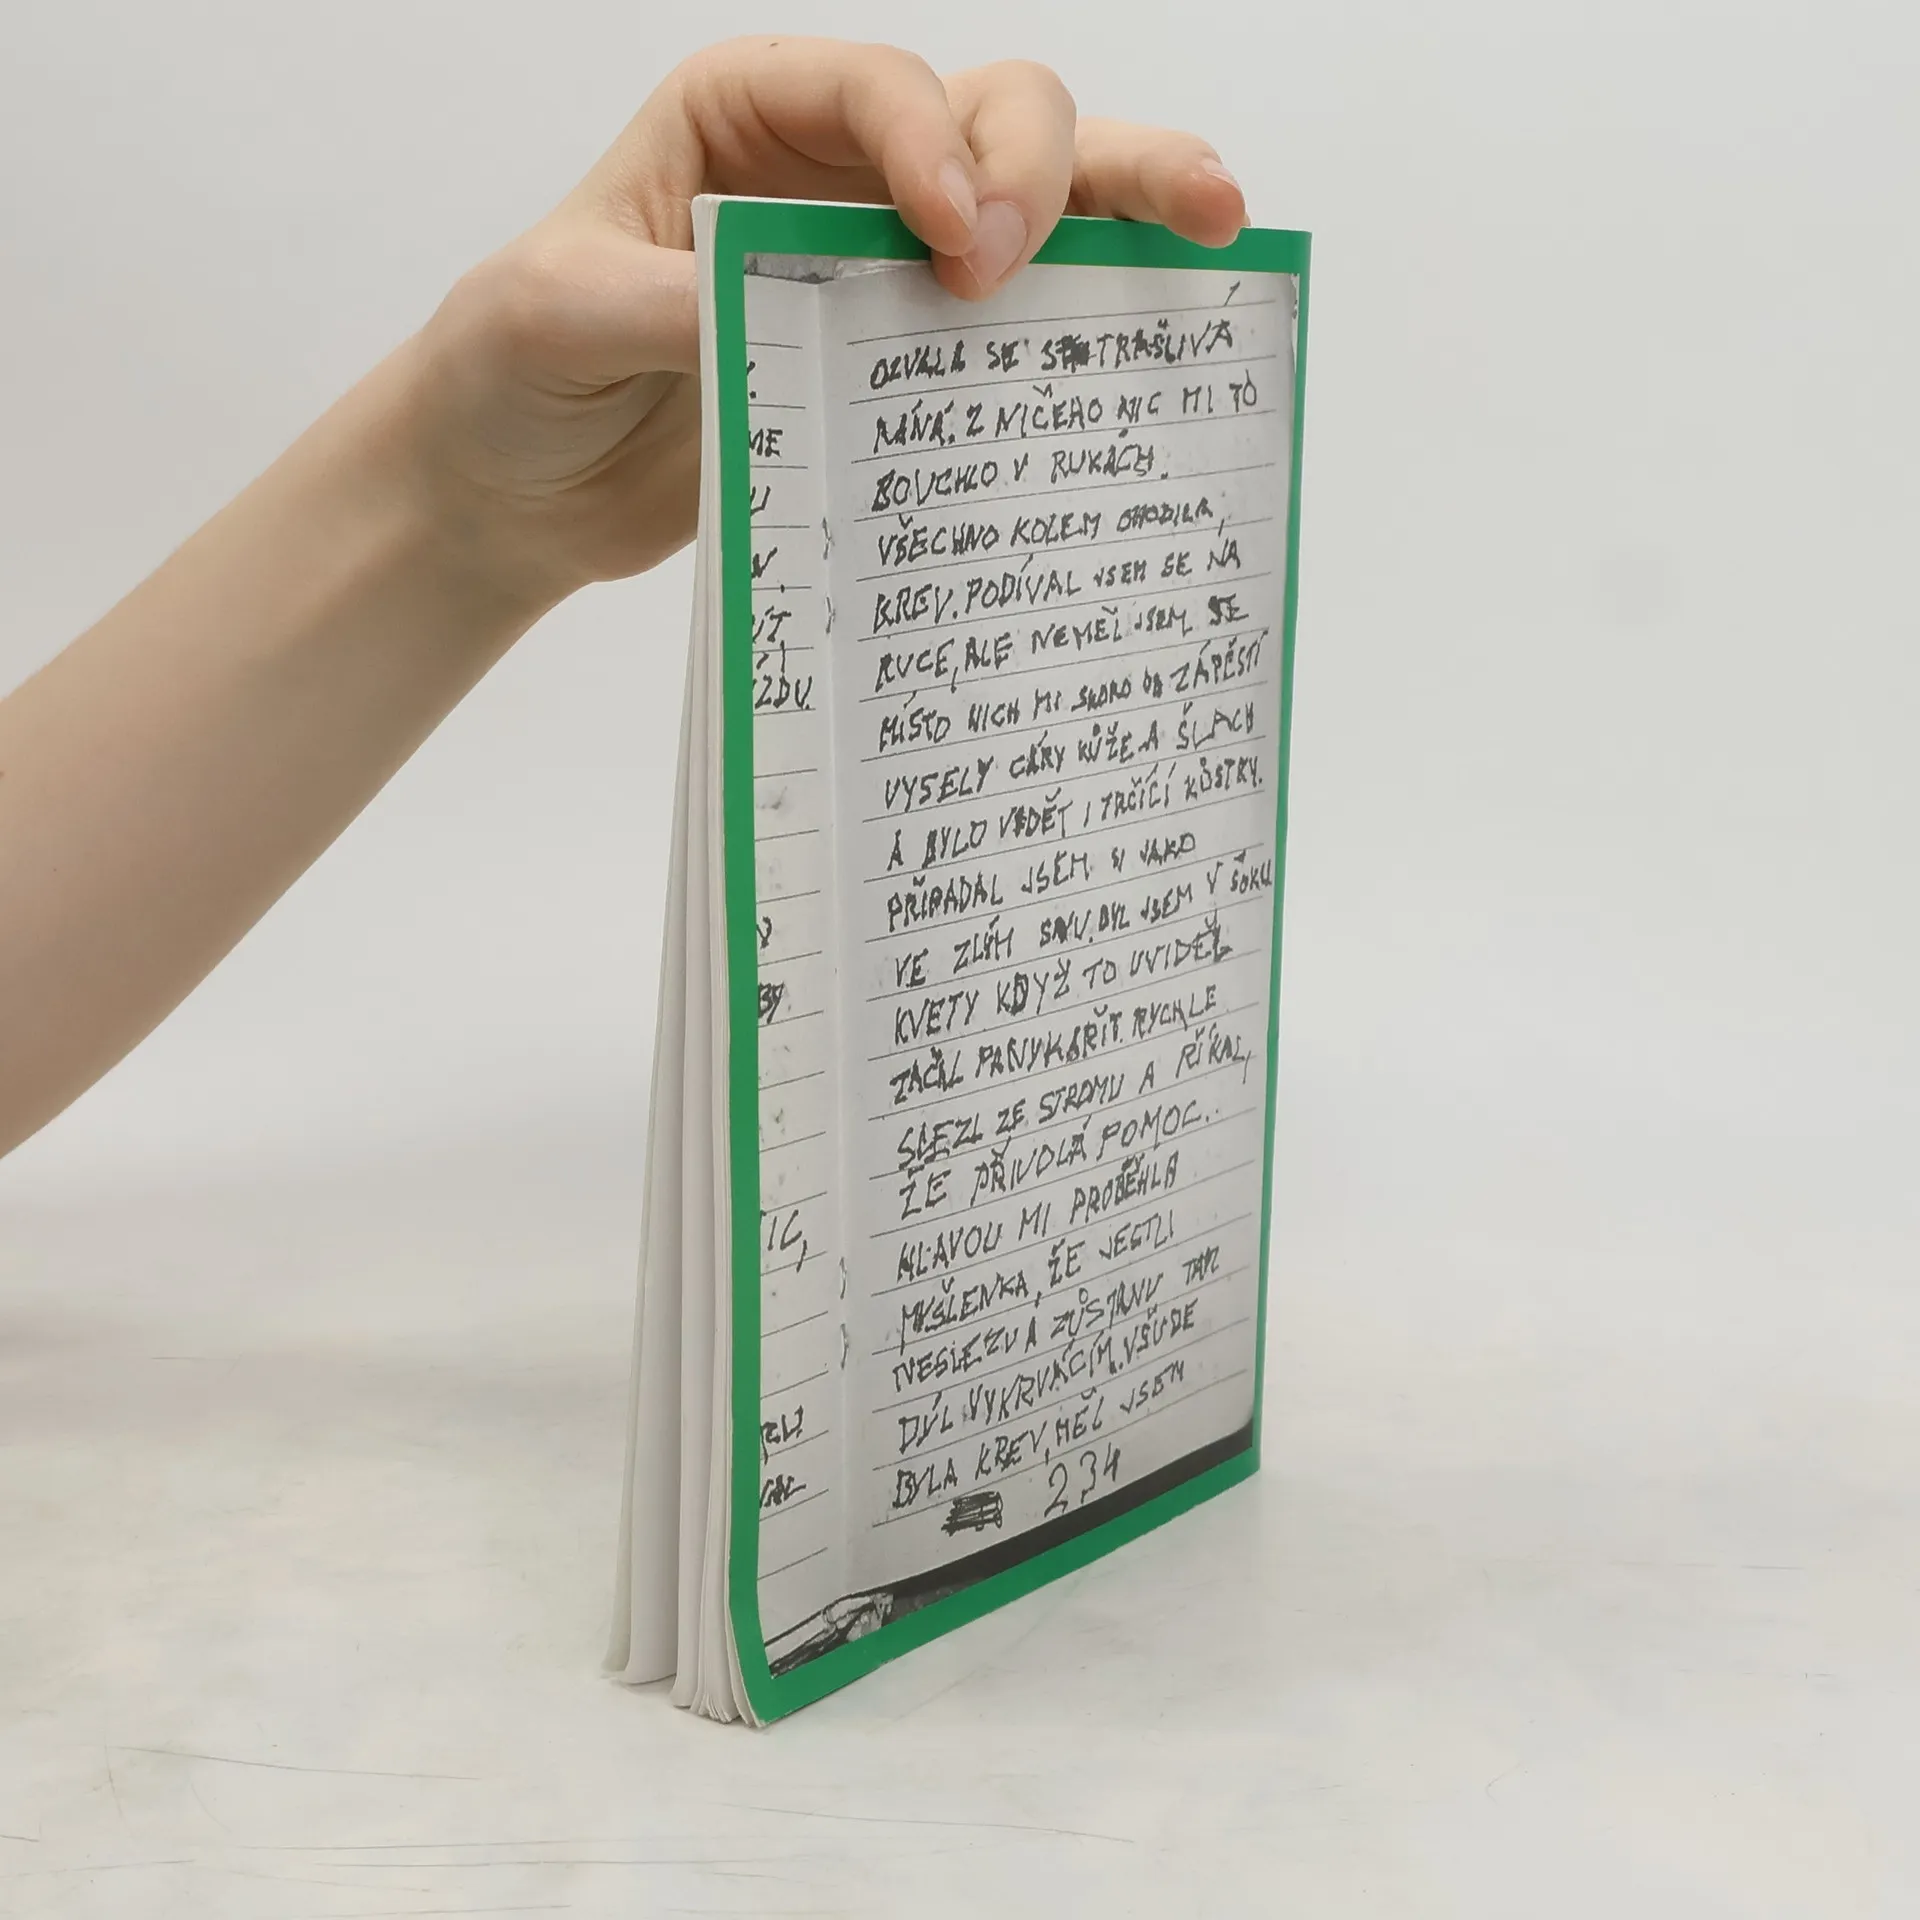 OZVALA SE STRAŠLIVÁ
RÁNÁ. Z NIČEHO NIC MI TO
BOUCHLO V RUKÁCH.
VŠECHNO KOLEM OHODILA,
KREV. PODÍVAL JSEM SE NA
RUCE, ALE NEMĚL JSEM JE
MÍSTO NICH MI SKORO OD ZÁPĚSTÍ
VYSELY CÁRY KŮŽE A ŠLACH
A BYLO VIDĚT I TRČÍCÍ KŮSTKY.
PŘIPADAL JSEM SI JAKO
VE ZLÝM SNU. BYL JSEM V ŠOKU
KVETY KDYŽ TO UVIDĚL
ZAČAL PANYKAŘIT. RYCHLE
SLEZL ZE STROMU A ŘÍKAL,
ŽE PŘIVOLÁ POMOC.
HLAVOU MI PROBĚHLA
MYŠLENKA, ŽE JESTLI
NESLEZU A ZŮSTANU TAM
DÝL VYKRVÁCÍM. VŠUDE
BYLA KREV, MĚL JSEM
234
ME
ZDU.
BY